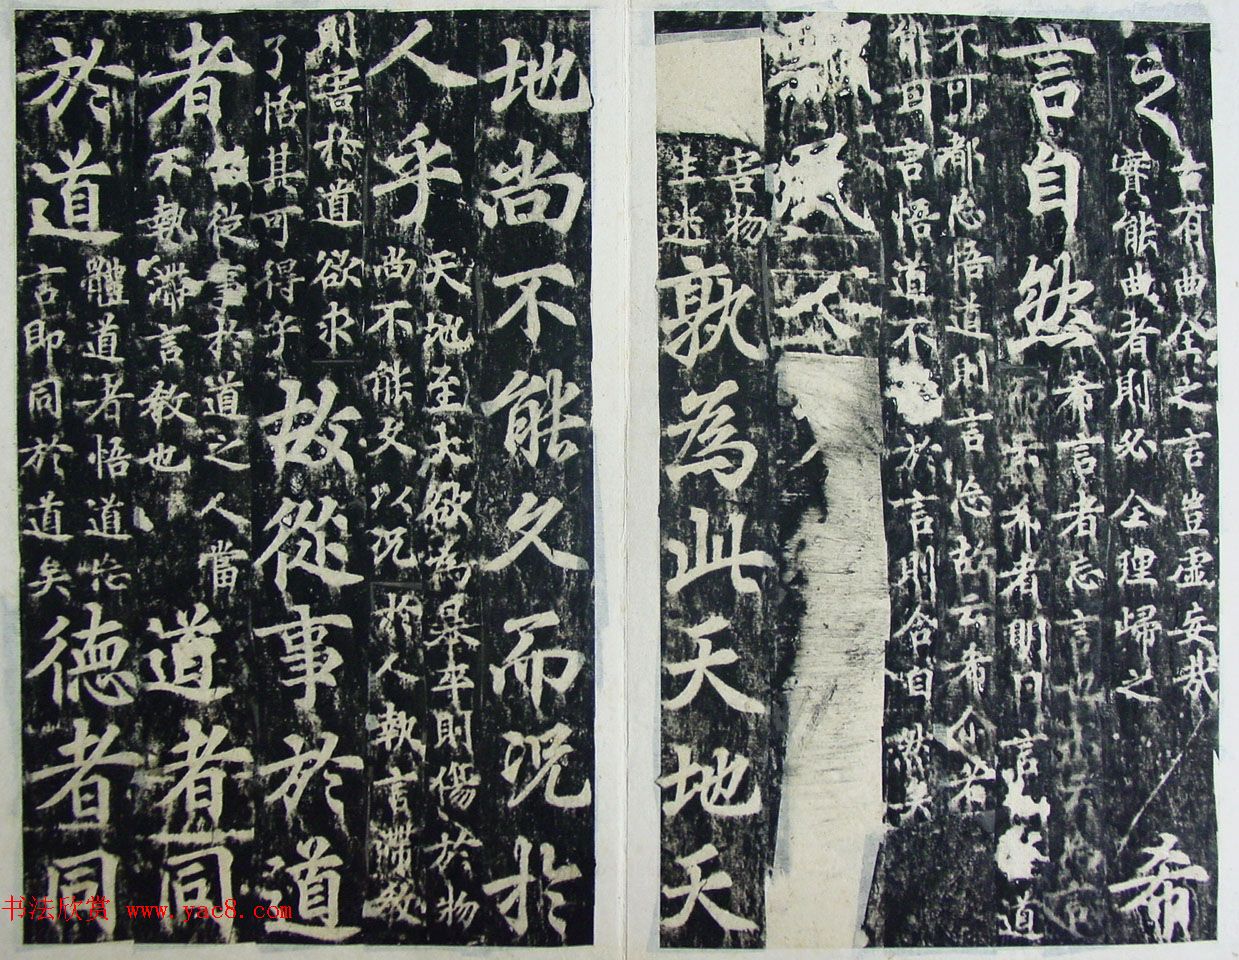 之
古有曲全之言豈虛妄哉
實能曲者則必全理歸之
希
言自然
希言者忘言也不云忘言
而云希者則因言道
不可都忘悟道則言忘故云希介若
能因言悟道不於言則合自然矣
飄風不
害物
生迷
孰為此天地天
地尚不能久而況於
人乎
天地至大欲為暴卒則傷於物
尚不能久以況於人執言滯教
則害於道欲求
了悟其可得乎
故從事於道
者
故從事於道之人當
不執滯言教也
道者同
於道
體道者悟道忘
言即同於道矣
德者同
书法欣赏 www.yac8.com